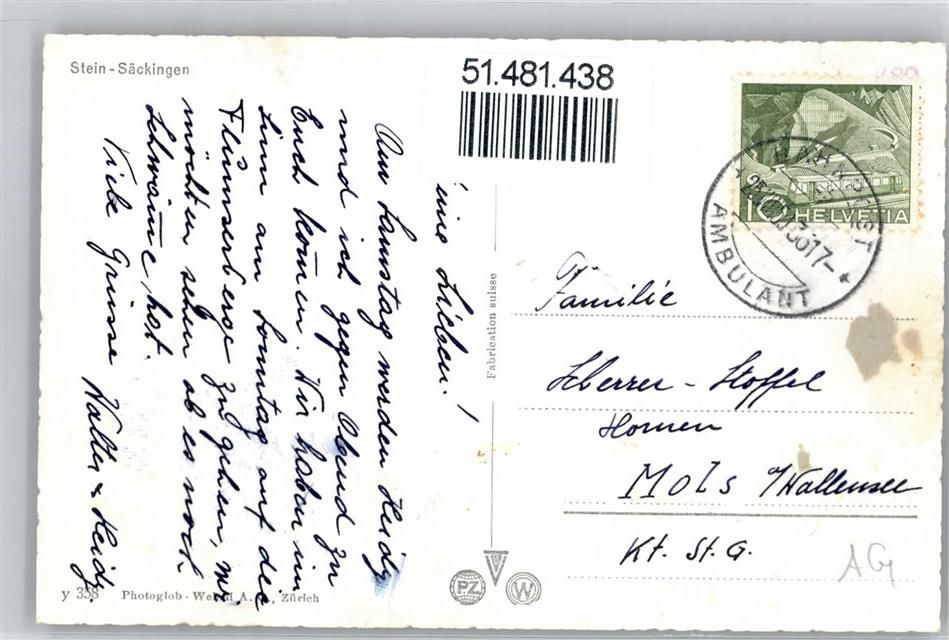 Stein - Säckingen
51.481.438
HELVETIA
10
BAHNPOST
AMBULANT
Meine Lieben!
Am Samstag werden Heidy
und ich gegen Abend zu
Euch kommen. Wir haben im
Sinn am Sonntag auf die
Flumserberge zu gehen, wir
möchten sehen ob es noch
Schwämme hat.
Viele Grüsse Walter & Heidy.
Fabrication suisse
Familie
Scherrer - Stoffel
Hornen
Mols a/Wallensee
Kt. St. G.
AG
y 358 Photoglob - A. G., Zürich
PZ
W